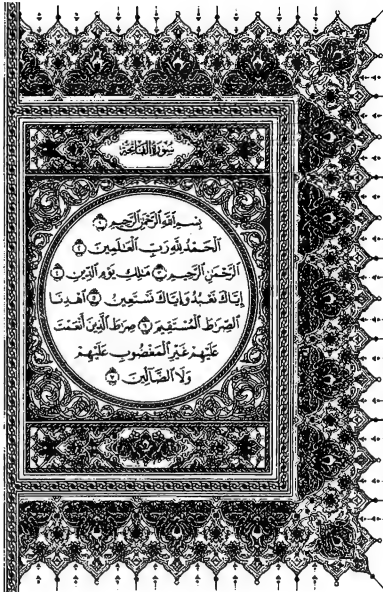 سُورَةُ الفَاتِحَةِ
بِسْمِ اللَّهِ الرَّحْمَٰنِ الرَّحِيمِ ١
الْحَمْدُ لِلَّهِ رَبِّ الْعَٰلَمِينَ ٢
الرَّحْمَٰنِ الرَّحِيمِ ٣ مَٰلِكِ يَوْمِ الدِّينِ ٤
إِيَّاكَ نَعْبُدُ وَإِيَّاكَ نَسْتَعِينُ ٥ اهْدِنَا
الصِّرَٰطَ الْمُسْتَقِيمَ ٦ صِرَٰطَ الَّذِينَ أَنْعَمْتَ
عَلَيْهِمْ غَيْرِ الْمَغْضُوبِ عَلَيْهِمْ
وَلَا الضَّالِّينَ ٧